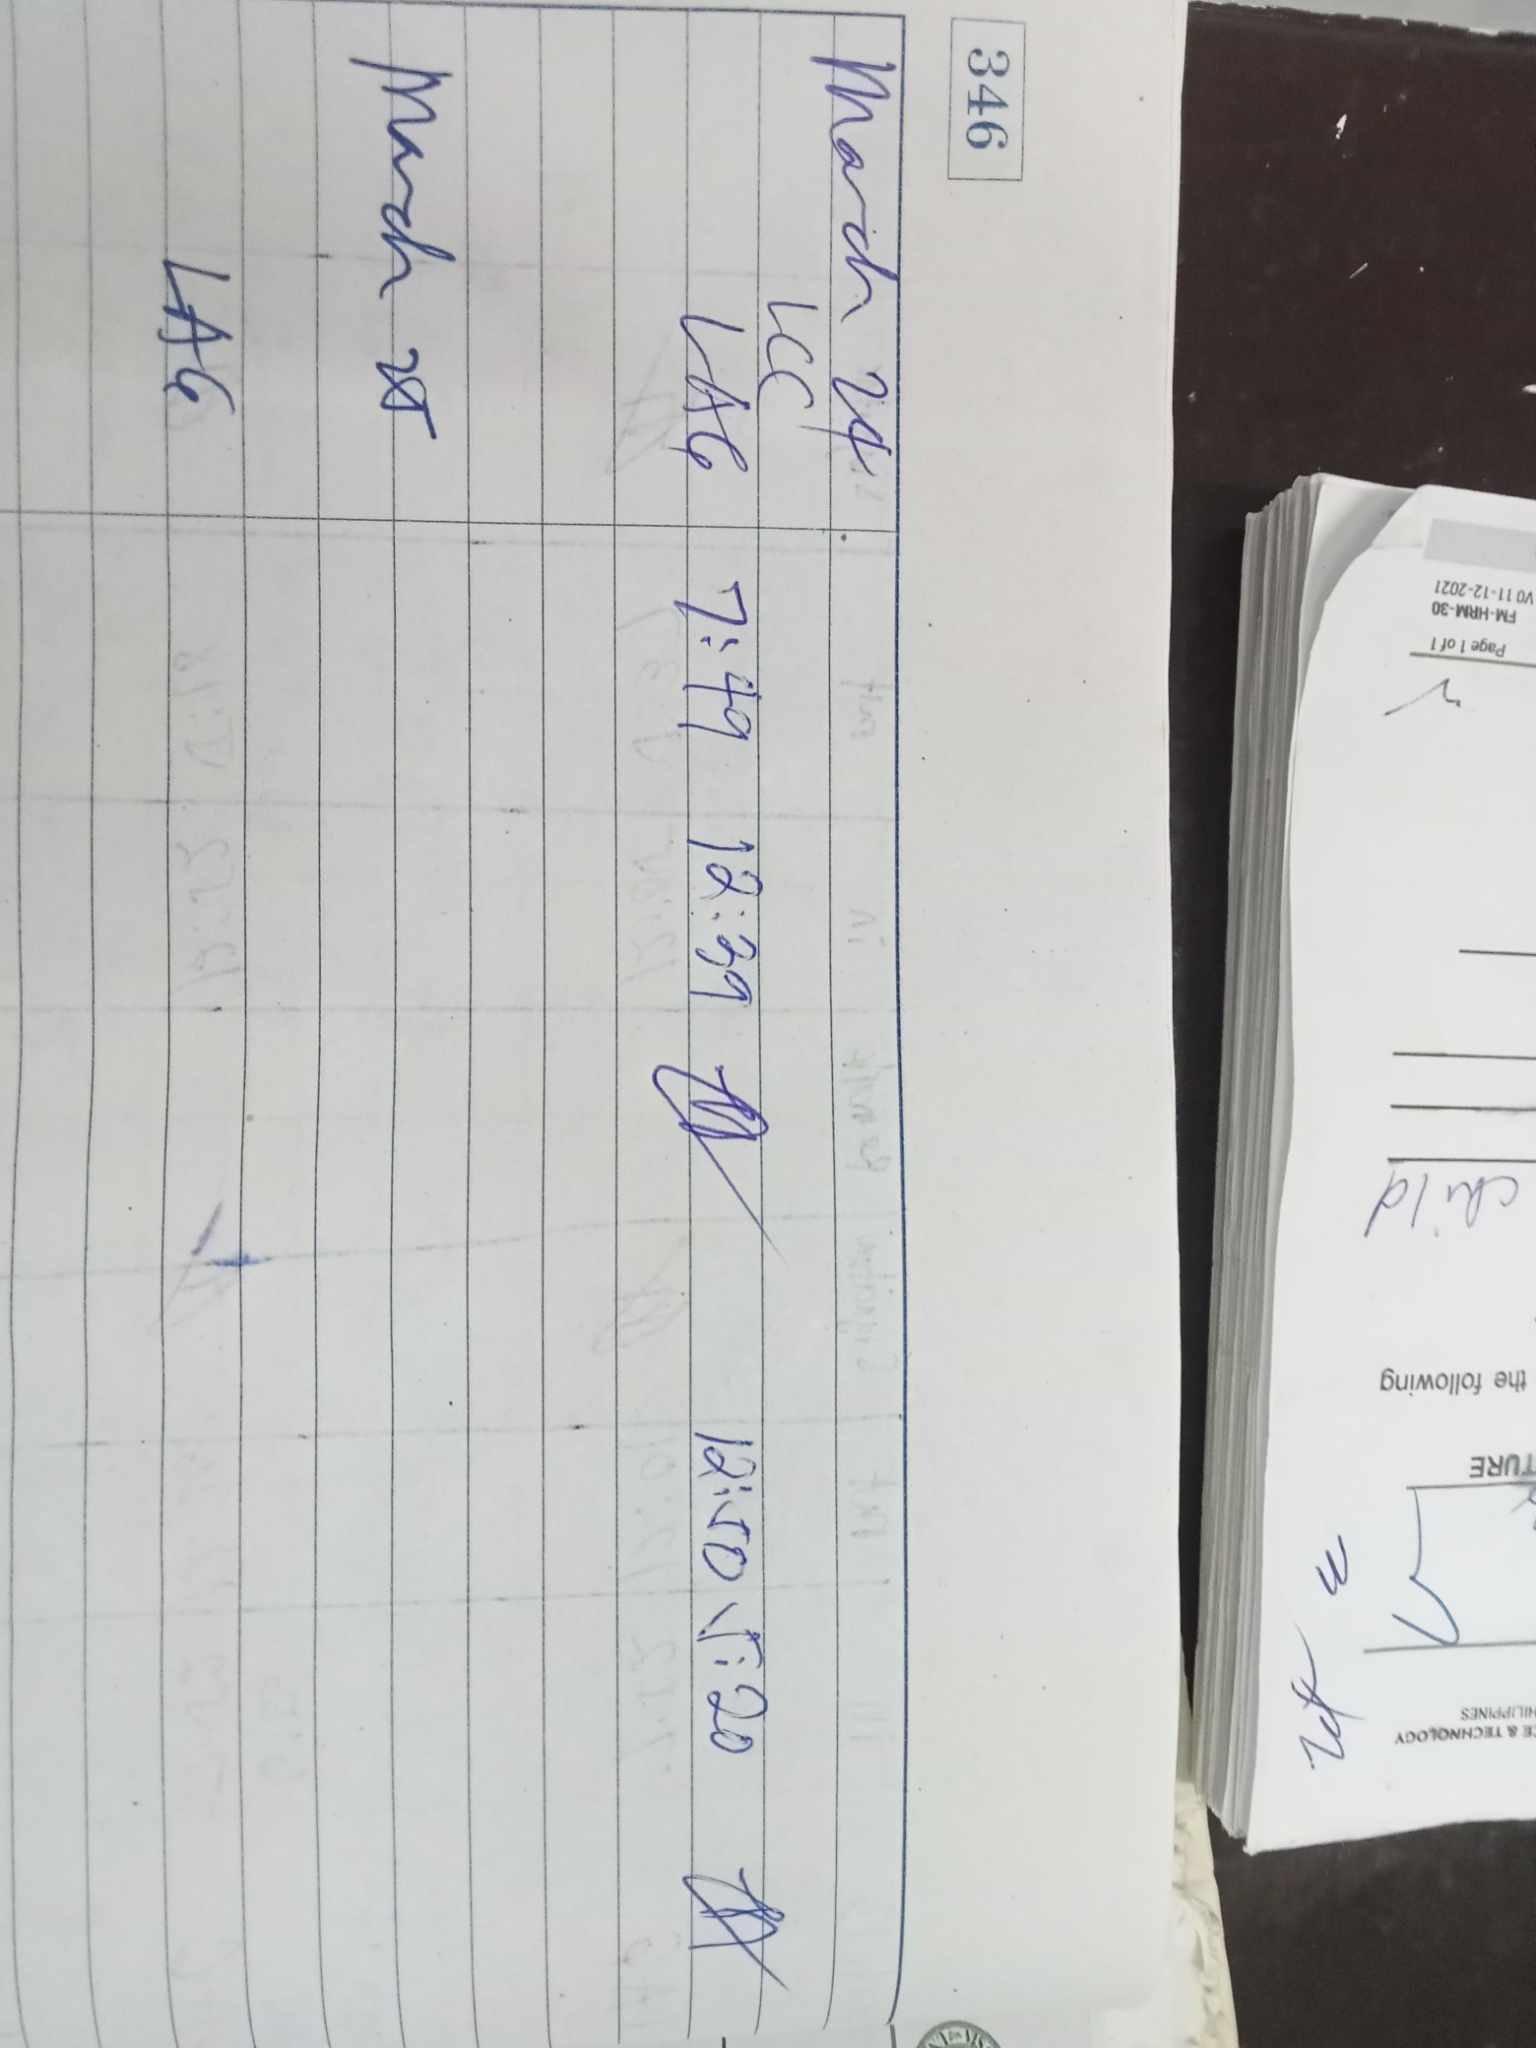 346
March 24
LCC
LAG 7:49 12:39 12:50 5:20
March 25
LAG
CE & TECHNOLOGY
HILIPPINES
TURE
the following
child
Page 1 of 1
FM-HRM-30
V0 11-12-2021